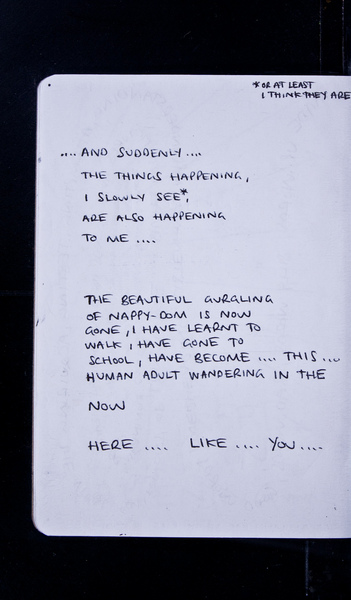 *OR AT LEAST
I THINK THEY ARE
.... AND SUDDENLY ....
THE THINGS HAPPENING,
I SLOWLY SEE*,
ARE ALSO HAPPENING
TO ME ....
THE BEAUTIFUL GURGLING
OF NAPPY-DOM IS NOW
GONE, I HAVE LEARNT TO
WALK, HAVE GONE TO
SCHOOL, HAVE BECOME .... THIS ...
HUMAN ADULT WANDERING IN THE
NOW
HERE .... LIKE .... YOU ....